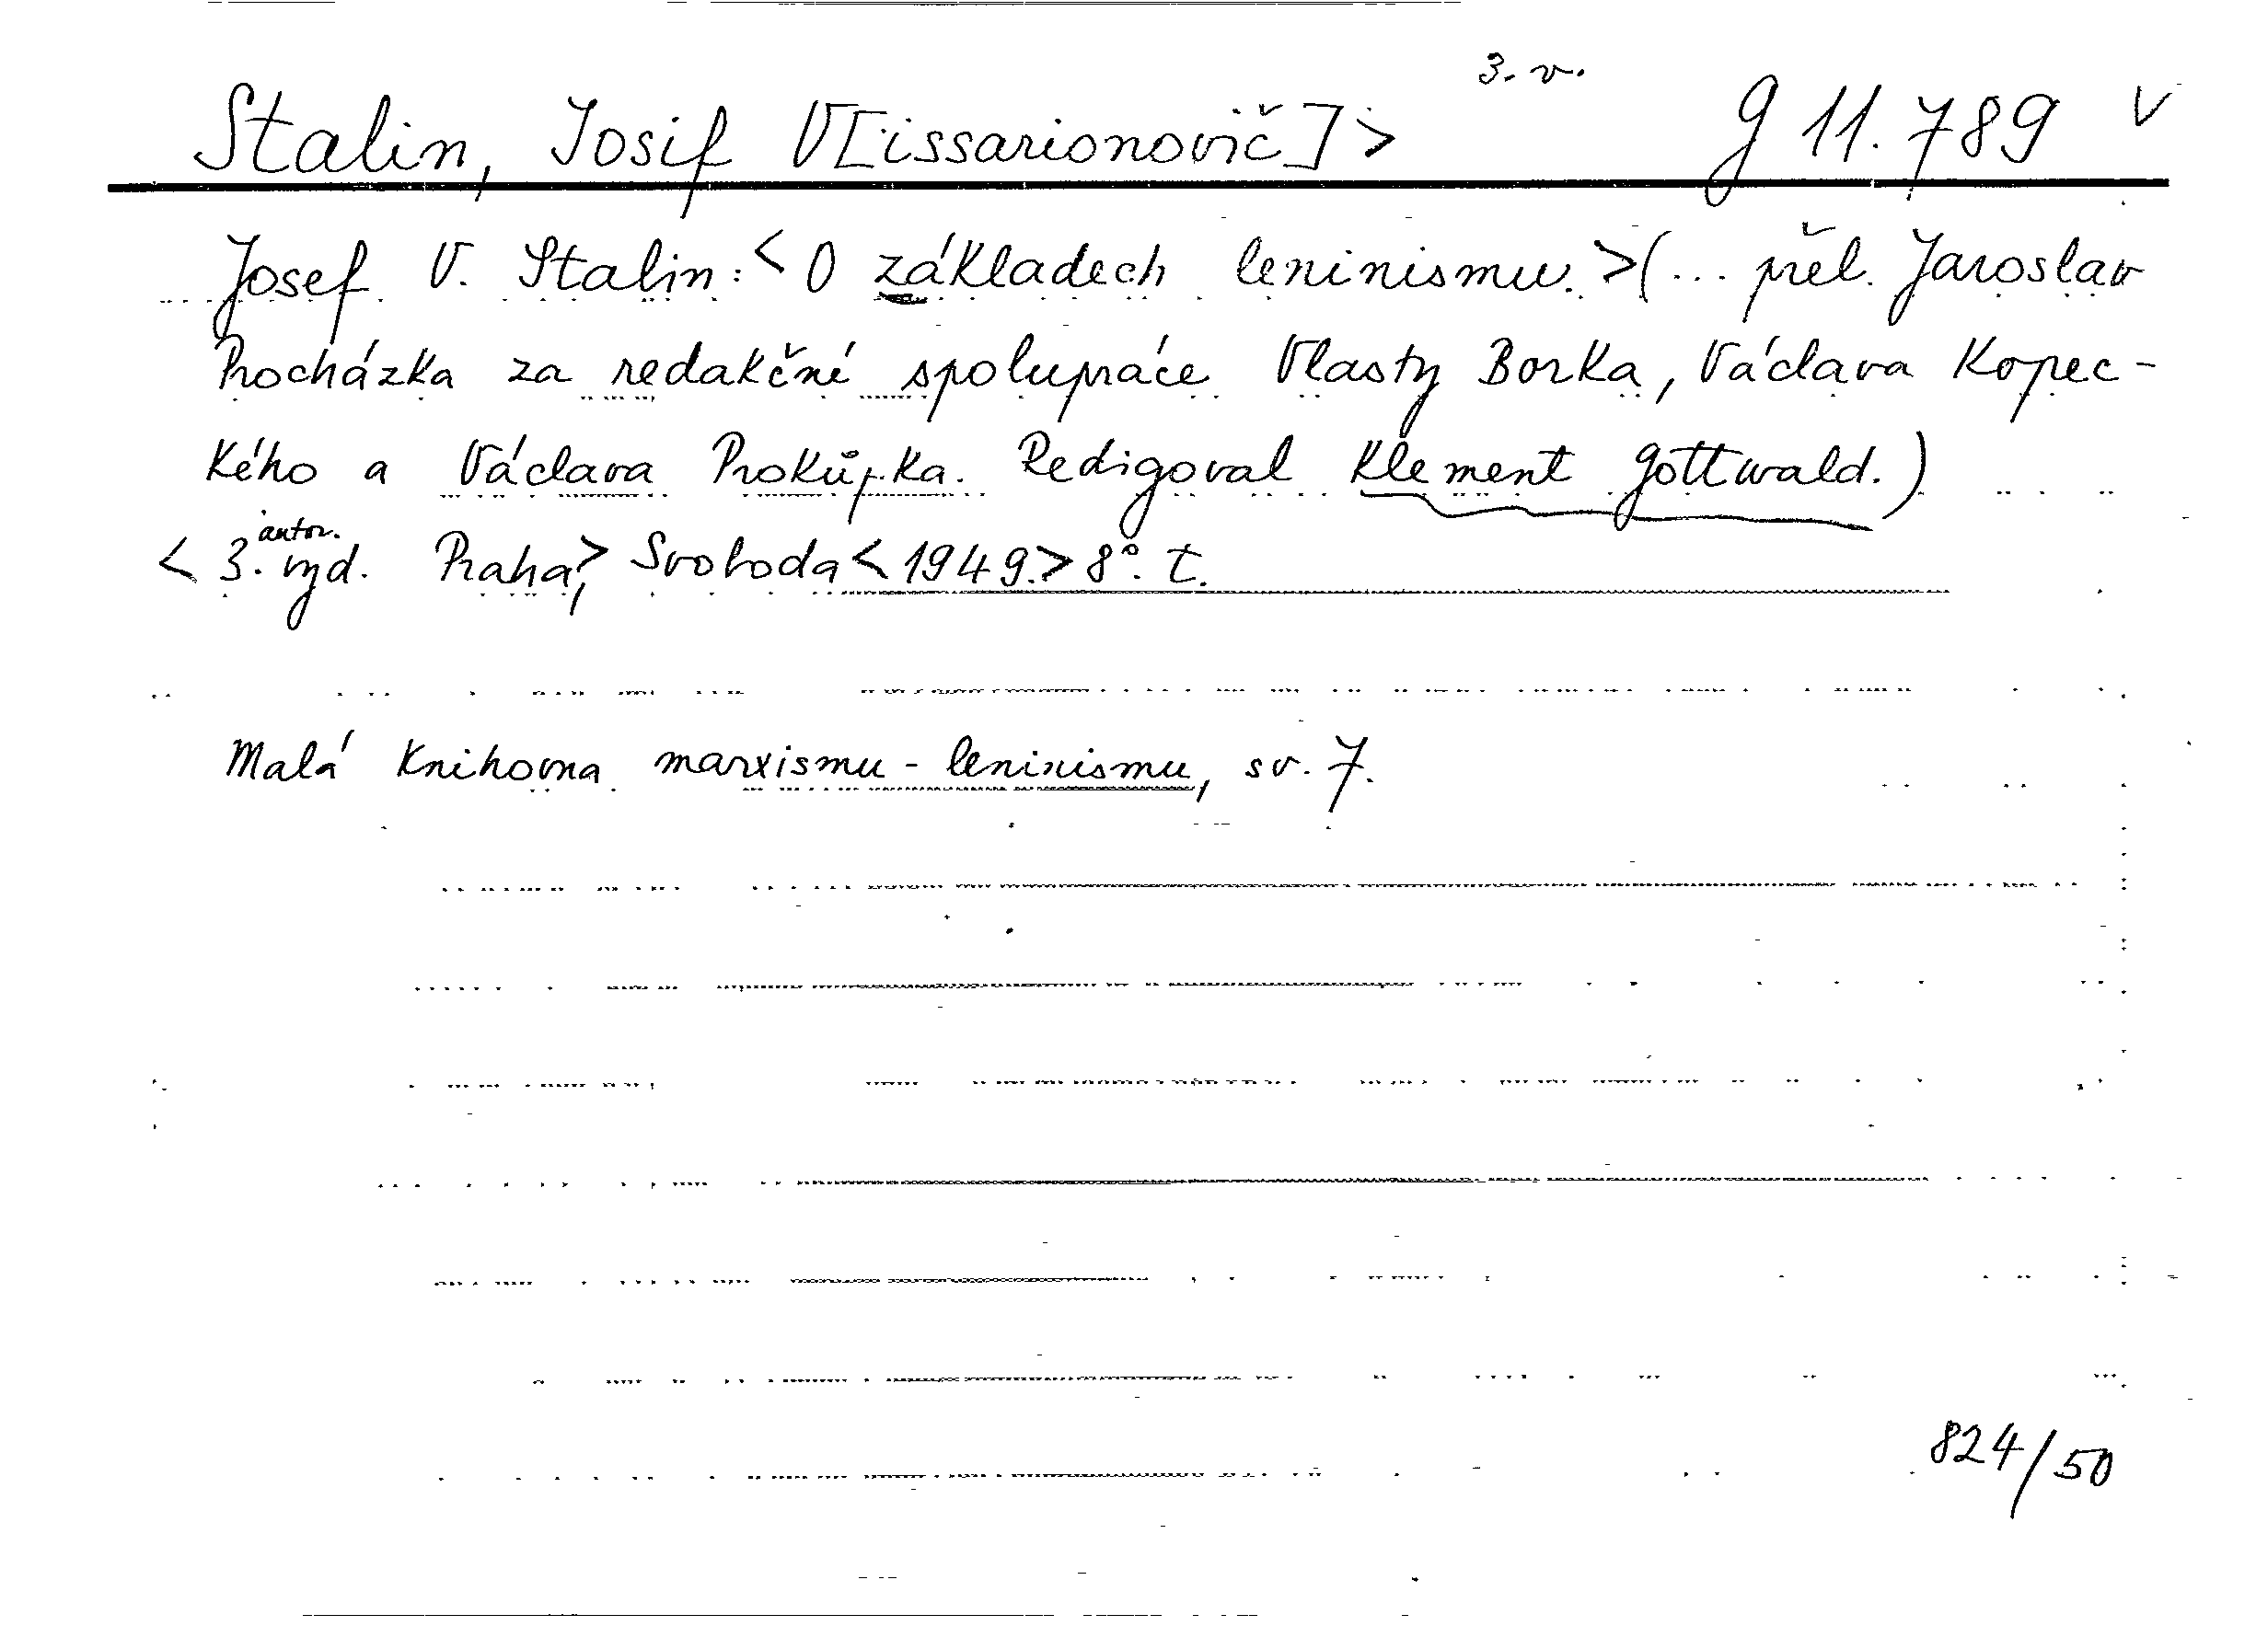 3. v.
Stalin, Josif V[issarionovič]> g 11.789 v
Josef V. Stalin: <O základech leninismu.>(... přel. Jaroslav
Procházka za redakčné spolupráce Vlasty Borka, Václava Kopec-
kého a Václava Prokůpka. Redigoval Klement Gottwald.)
autor.
<3. vyd. Praha,> Svoboda <1949.> 8°. t.
Malá knihovna marxismu-leninismu, sv. 7.
824/50